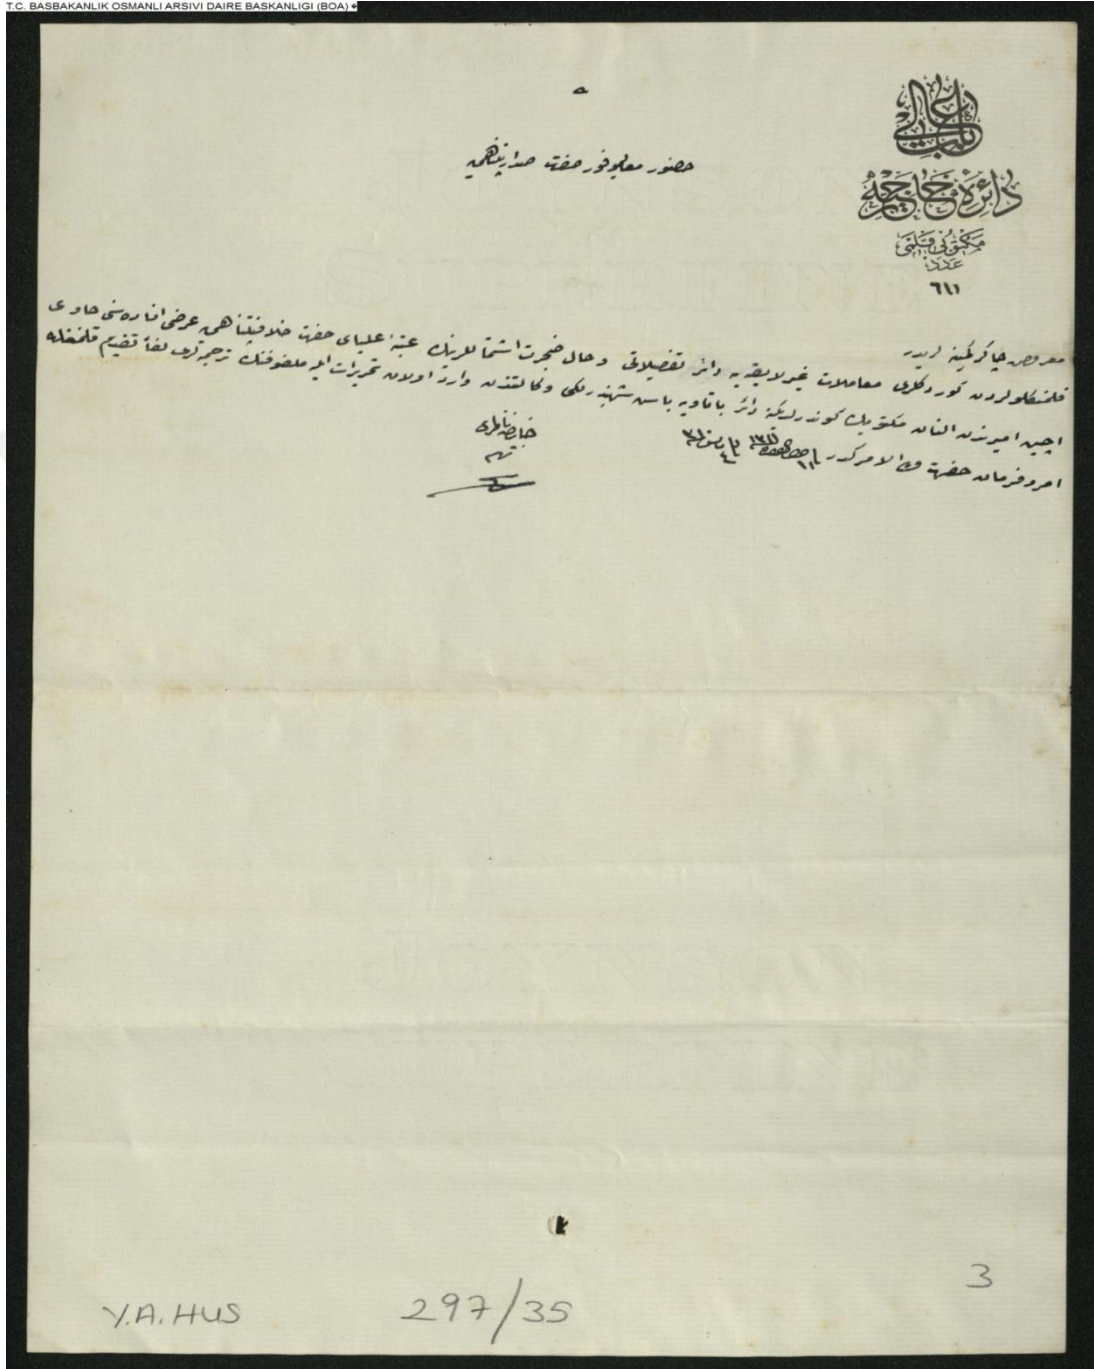 T.C. BASBAKANLIK OSMANLI ARSIVI DAIRE BASKANLIGI (BOA)
باب عالی
دائرۀ خارجیه
مكتوبی قلمی
عدد
٦١١
حضور معالیوفور حضرت صدارتپناهی
معروض چاكر كمینه لریدر
فلمنكلولردن كوردكلری معاملات غیر لایقه یه دائر تفصیلاتی و حال ضجرت اشتماللرینك عتبۀ علیای حضرت خلافتپناهی عرضی افاده سنی حاوی
ایچین امیرزن النان مكتوبك كوندرلدیكنه دائر باتاویه باش شهبندرلكی وكالتندن وارد اولان تحریرات ایله ملفوفنك ترجمه لری لفاً تقدیم قلنمغله
امر و فرمان حضرت من له الامركدر
خارجیه ناظری
Y.A.HUS
297/35
3